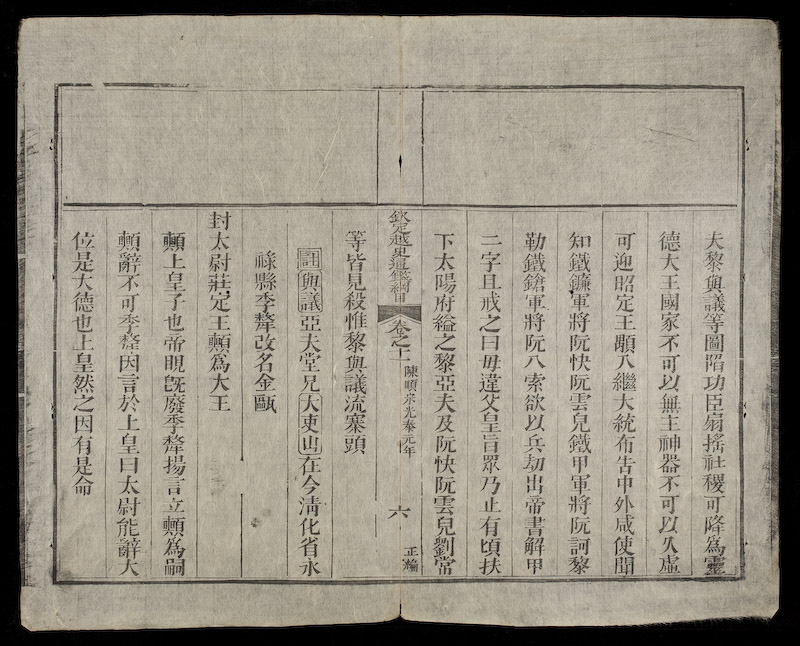 夫黎與議等圖陷功臣扇搖社稷可降爲靈
德大王國家不可以無主神器不可以久虛
可迎昭定王顒入繼大統布告中外咸使聞
知鐵鐮軍將阮快阮雲兒鐵甲軍將阮訶黎
勒鐵鎗軍將阮八索欲以兵刼出帝書解甲
二字且戒之曰毋違父皇旨眾乃止有頃扶
下太陽府縊之黎亞夫及阮快阮雲兒劉常
等皆見殺惟黎與議流寨頭
欽定越史通鑑綱目
卷之十一
陳順宗光泰元年
六
正編
註與議亞夫堂兄大吏山在今淸化省永
祿縣季犛改名金甌
封太尉莊定王顠爲大王
顠上皇子也帝旣廢季犛揚言立顠爲嗣
顠辭不可季犛因言於上皇曰太尉能辭大
位是大德也上皇然之因有是命